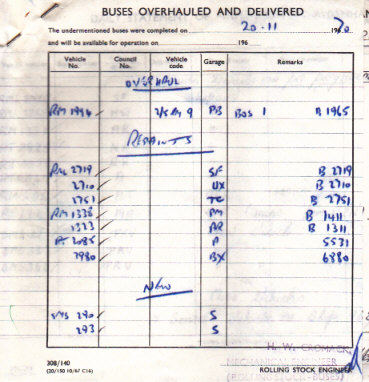 BUSES OVERHAULED AND DELIVERED
The undermentioned buses were completed on 20-11 1970
and will be available for operation on 196
Vehicle No. Council No. Vehicle code Garage Remarks
OVERHAUL
RM 1994 9 PB BOS 1 B 1965
REPAINTS
RML 2719 SF B 2719
2710 UX B 2710
2751 TC B 2751
RM 1338 PM B 1411
1323 AR B 1311
RF 2085 A 5531
7980 BX 6880
NEW
SMS 290 S
293 S
H. W. CROMACK,
MECHANICAL ENGINEER
(ROLLING STOCK-BUSES)
308/140
(20/150 10/67 C16)
ROLLING STOCK ENGINEER